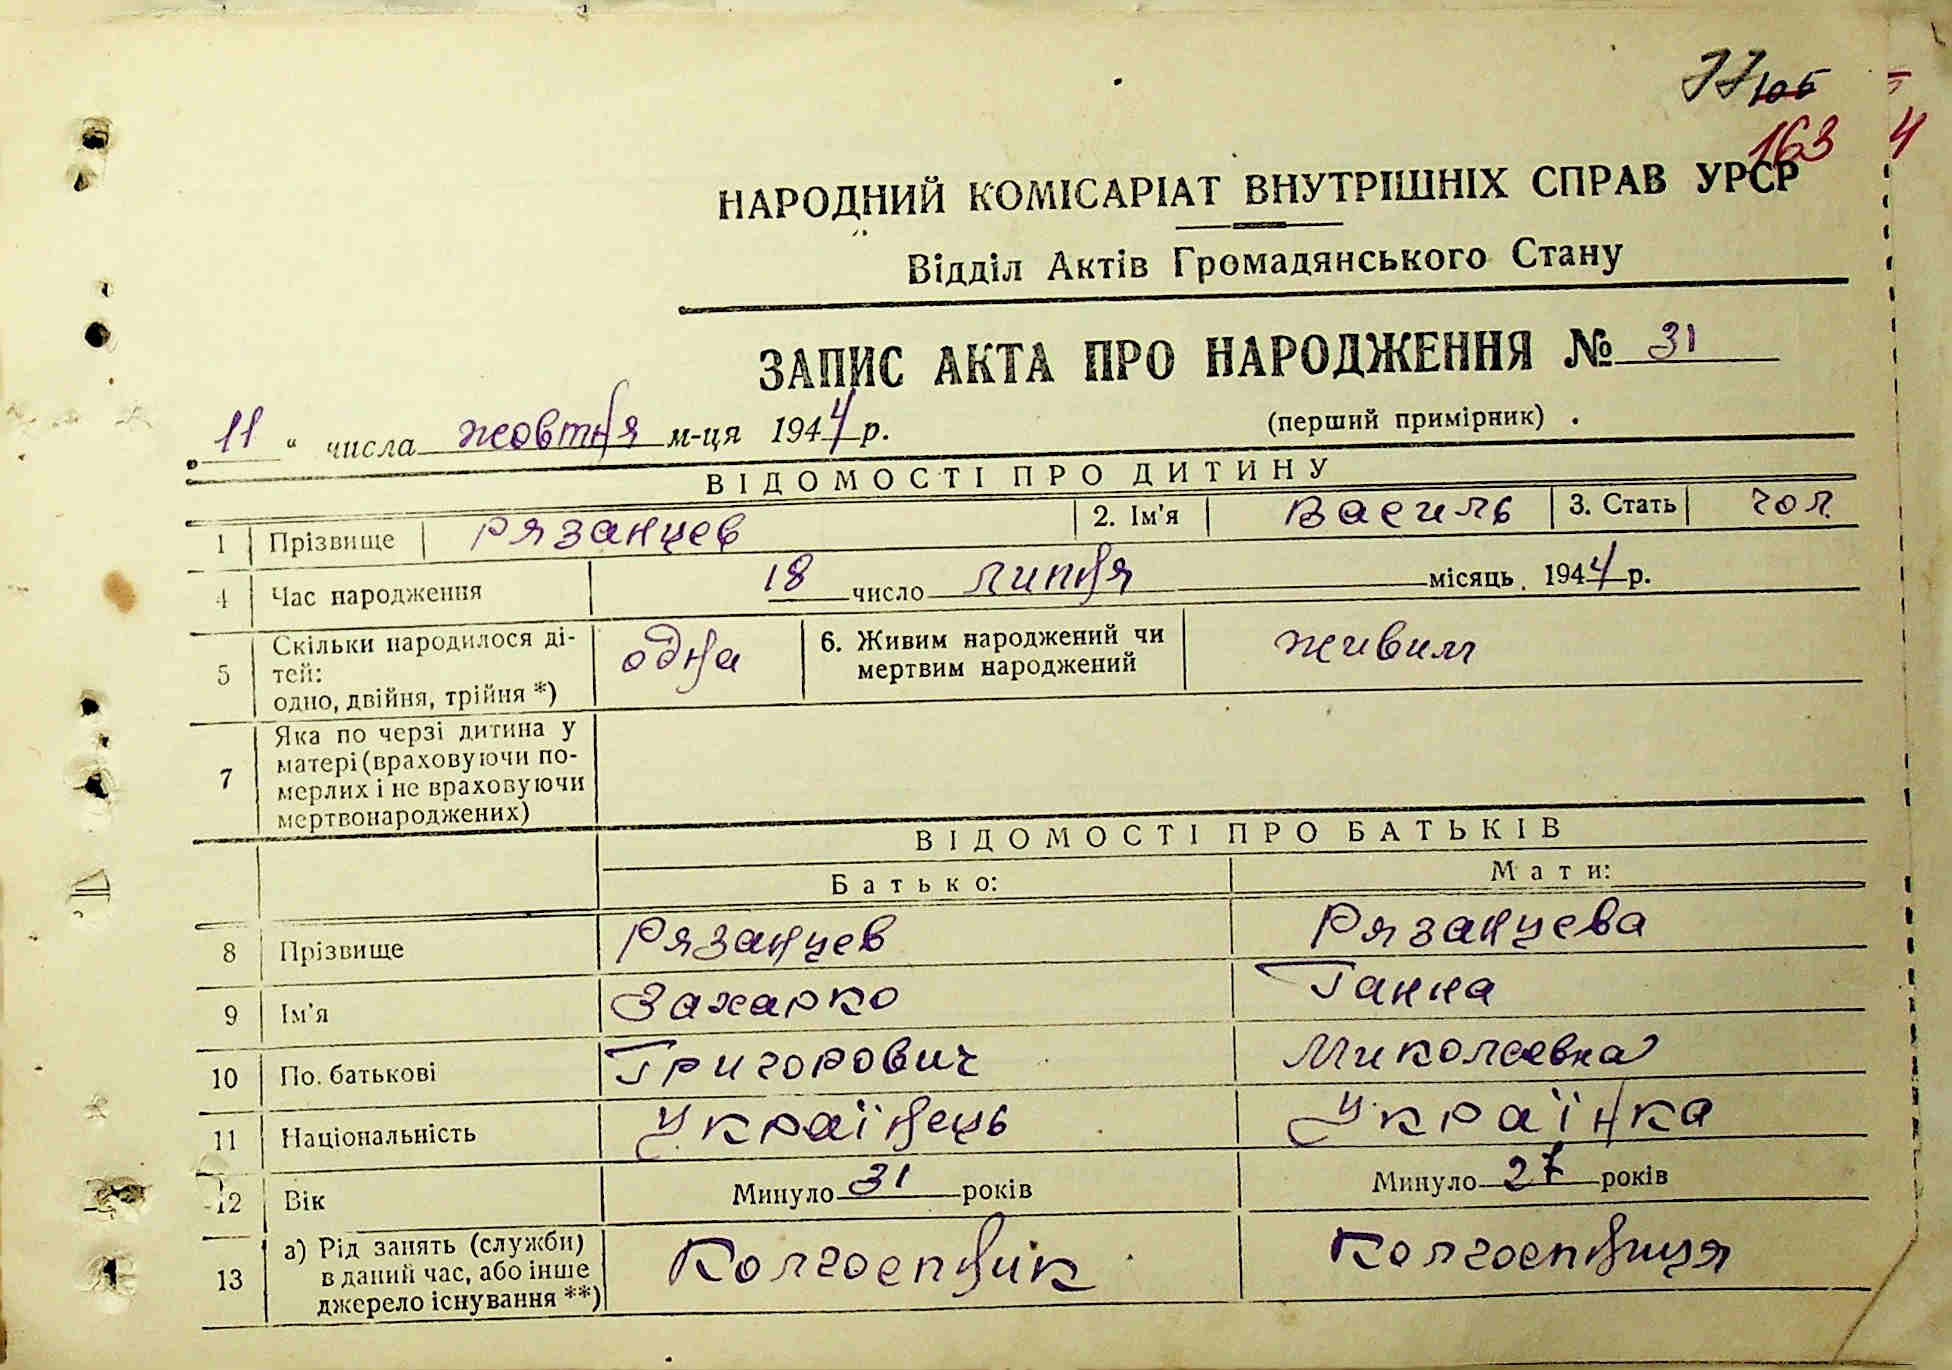 77 105
163 4
НАРОДНИЙ КОМІСАРІАТ ВНУТРІШНІХ СПРАВ УРСР
Відділ Актів Громадянського Стану
ЗАПИС АКТА ПРО НАРОДЖЕННЯ № 31
„ 11 " числа жовтня м-ця 1944 р. (перший примірник)
ВІДОМОСТІ ПРО ДИТИНУ
1 Прізвище Рязанцев 2. Ім'я Василь 3. Стать чол.
4 Час народження 18 число липня місяць 1944 р.
5 Скільки народилося ді-
тей:
одно, двійня, трійня *) одна 6. Живим народжений чи
мертвим народжений живим
7 Яка по черзі дитина у
матері (враховуючи по-
мерлих і не враховуючи
мертвонароджених)
ВІДОМОСТІ ПРО БАТЬКІВ
Батько: Мати:
8 Прізвище Рязанцев Рязанцева
9 Ім'я Захарко Ганна
10 По батькові Григорович Миколаевна
11 Національність Українець Українка
12 Вік Минуло 31 років Минуло 27 років
13 а) Рід занять (служби)
в даний час, або інше
джерело існування **) Колгоспник колгоспниця